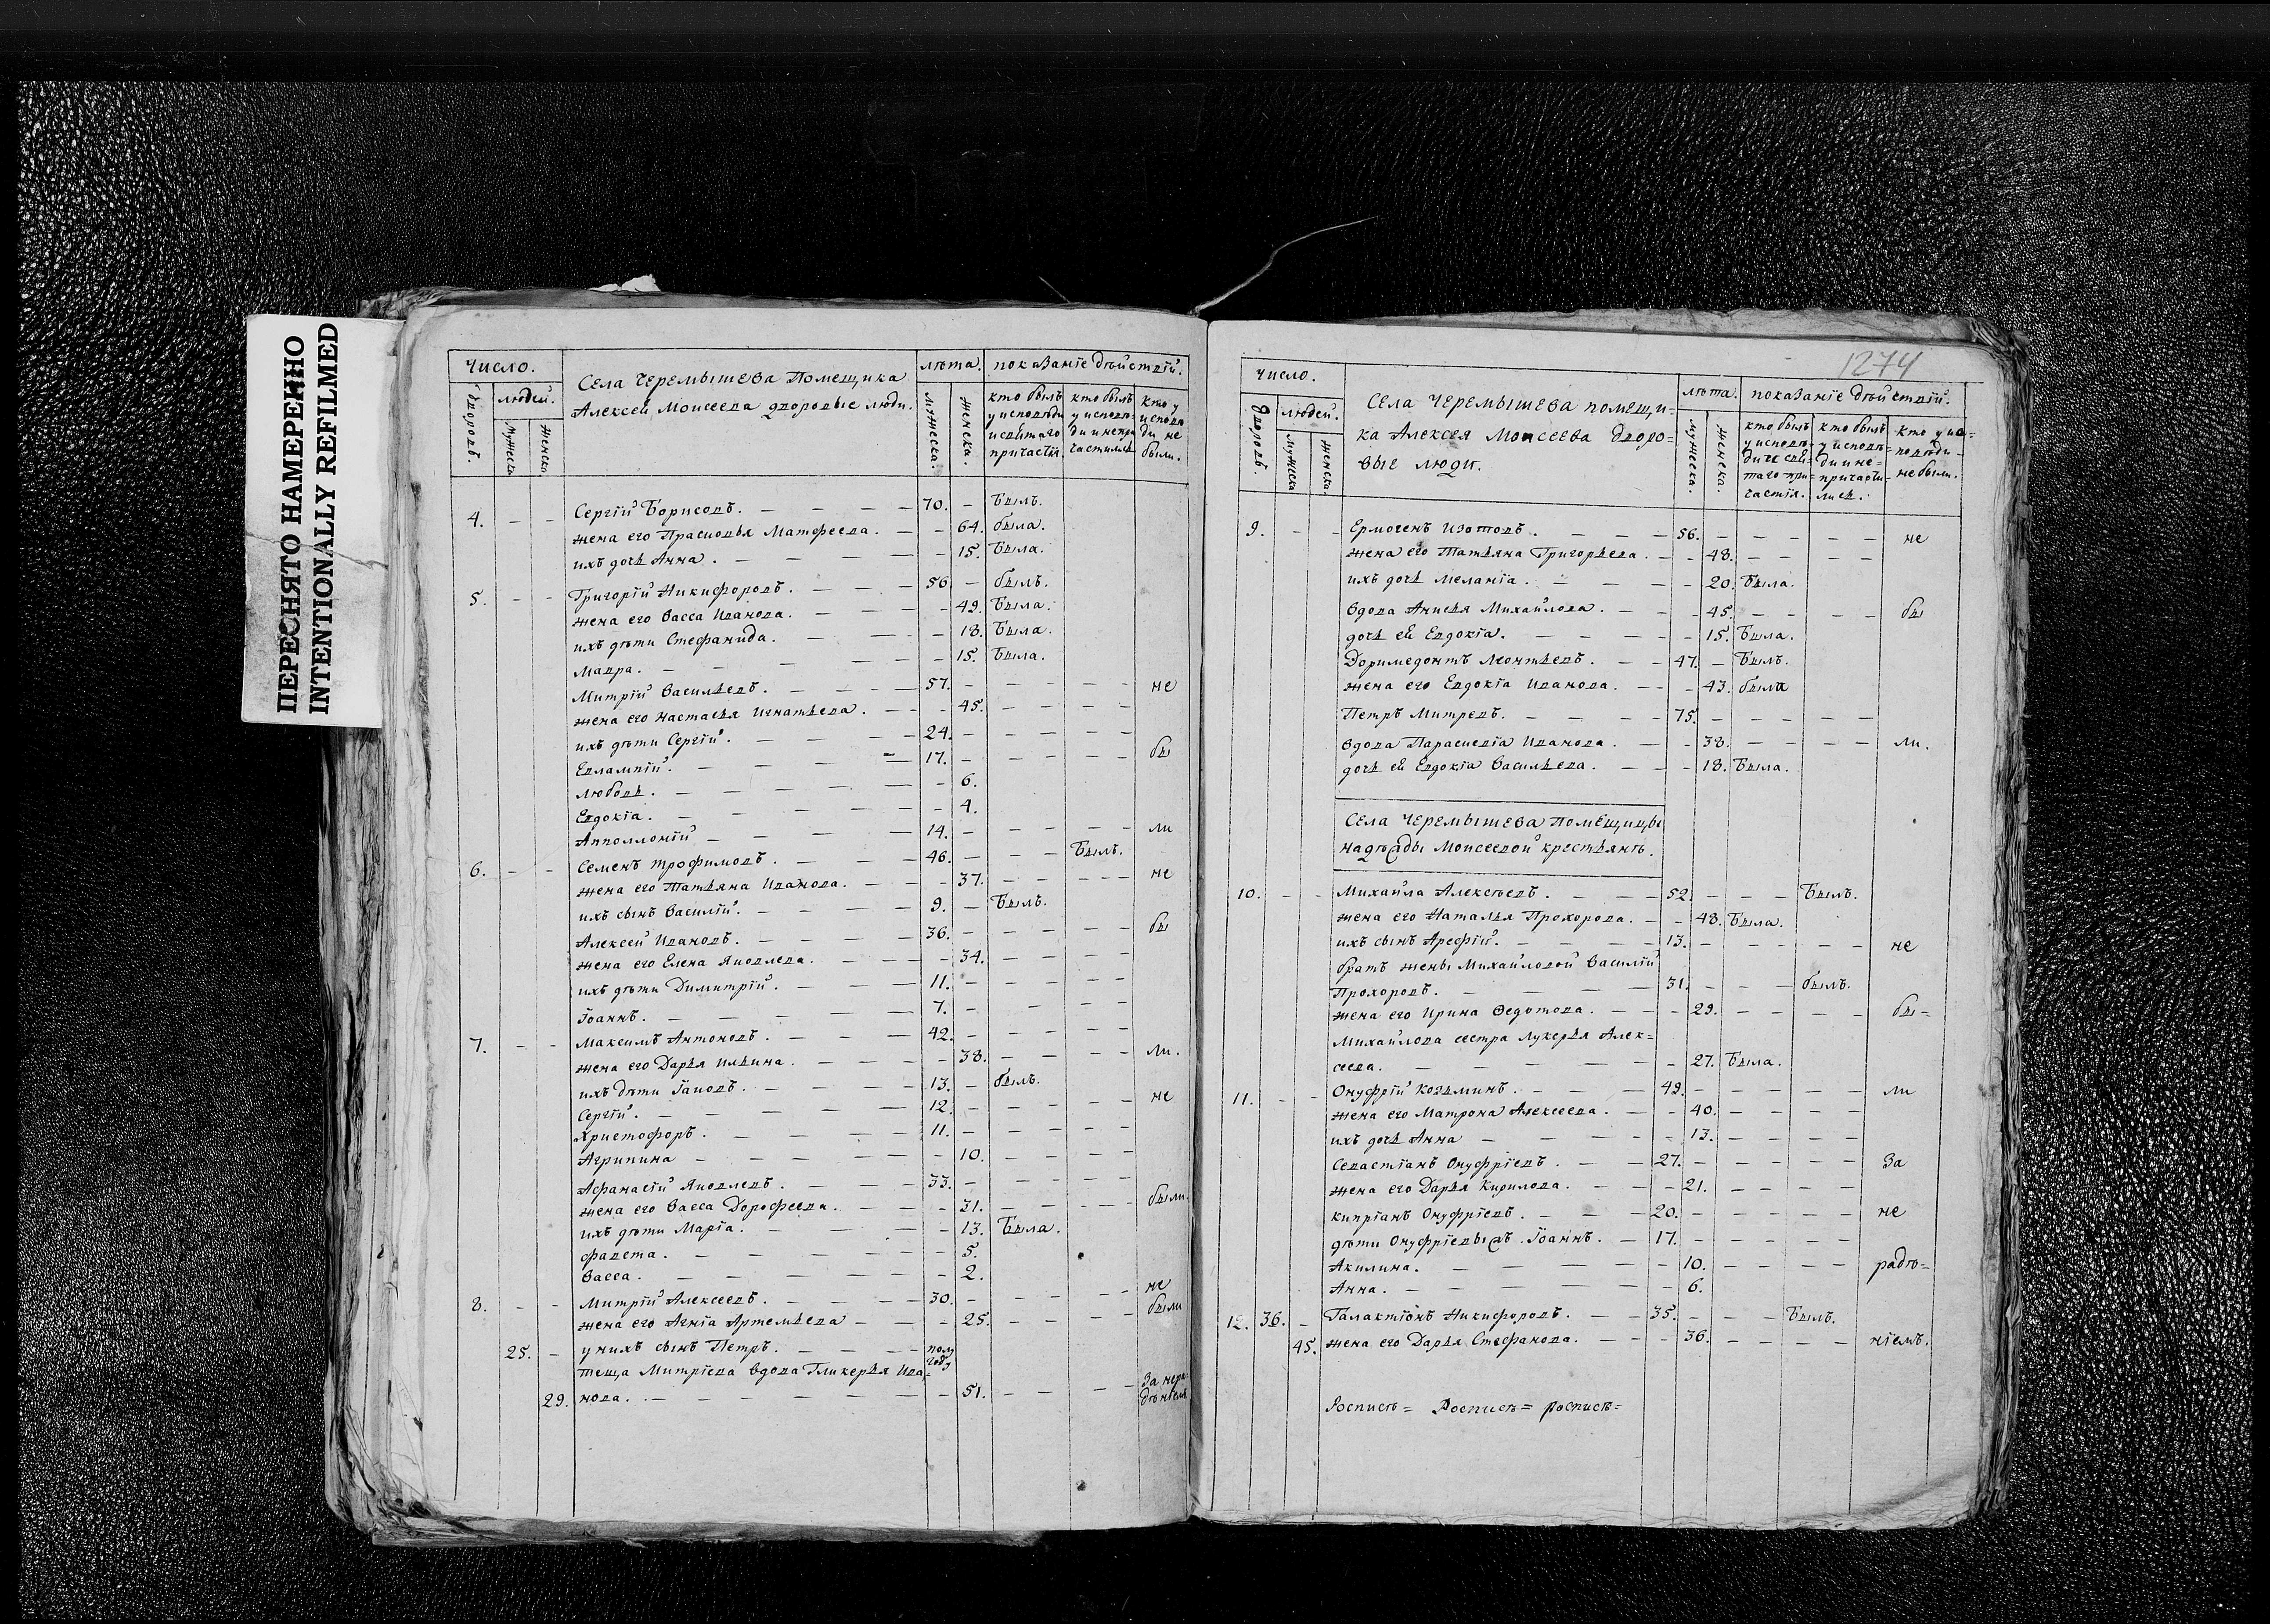 ПЕРЕСНЯТО НАМЕРЕННО
INTENTIONALLY REFILMED
число.
дворовъ.
людей.
мужеска
женска.
Села Черемышева Помещика
Алексея Моисеева дворовые люди.
лѣта.
мужеска.
женска.
показанїе дѣйствїй.
кто былъ у исповѣди и святаго причастїя
кто былъ у исповѣди и непричастился
кто у исповѣди не были.
4. – – Сергїй Борисовъ. – – – – 70. – Былъ.
жена его Прасковья Матфеева. – – 64. была.
ихъ дочь Анна. – – – – 15. Была.
5. – – Григорїй Никифоровъ. – – – 56 – былъ.
жена его Васса Иванова. – – – 49. Была.
ихъ дѣти Стефанида. – – – 18. Была.
Мавра. – – – – – 15. Была.
Митрїй Васильевъ. – – – – 57. – – – – – не
жена его Настасья Игнатьева. – – – 45. – – – –
ихъ дѣти Сергїй. – – – – 24. – – – – –
Евлампїй. – – – – – 17. – – – – – бы
Любовь. – – – – – – 6.
Евдокїа. – – – – – – 4.
Апполлонїй – – – – 14. – – – – – ли
6. – – Семенъ Трофимовъ. – – – – 46. – – – Былъ.
жена его Татьяна Иванова. – – – 37. – – – – – не
ихъ сынъ Василїй. – – – – 9. – Былъ.
Алексей Ивановъ. – – – – 36. – – – – – бы
жена его Елена Яковлева. – – – – 34. – – – –
ихъ дѣти Димитрїй. – – – 11. – – – – –
Іоаннъ. – – – – – 7. – – – – –
7. – – Максимъ Антоновъ. – – – – 42. – – – – –
жена его Дарья Ильина. – – – – 38. – – – – ли.
ихъ дѣти Іаковъ. – – – – 13. – былъ.
Сергїй. – – – – – 12. – – – – – не
Христофоръ. – – – – 11. – – – – –
Агрипина – – – – – 10. – – – –
Афанасїй Яковлевъ. – – – 33. – – – – –
жена его Васса Дорофеева. – – – 31. – – – – – были.
ихъ дѣти Марїа. – – – – 13. Была.
Фавста. – – – – – – 5.
Васса. – – – – – – 2.
8. – – Митрїй Алексеевъ. – – – – 30. – – – – – не
жена его Агнїа Артемьева – – – – 25. – – – – – были
25. – у нихъ сынъ Петръ. – – – – полугоду
теща Митрїева вдова Гликерья Ива=
29. нова. – – – – – – 51. – – – – За нерадѣнїемъ
1274
число.
дворовъ.
людей.
мужеска
женска.
Села Черемышева помещи=
ка Алексея Моисеева дворо=
вые люди.
лѣта.
мужеска.
женска.
показанїе дѣйствїй.
кто былъ у исповѣди и святаго причастїя.
кто былъ у исповѣди и непричастились.
кто у исповѣди не были.
9. – – Ермогенъ Изотовъ. – – – – 56. – – – – – не
жена его Татьяна Григорьева. – – 48. – – – –
ихъ дочь Меланїа. – – – – 20. Была.
вдова Анисья Михайлова. – – – 45. – – – – бы
дочь ей Евдокїа. – – – – – 15. Была.
Доримедонтъ Леонтьевъ. – – 47. – Былъ.
жена его Евдокїа Иванова. – – – 43. была
Петръ Митревъ. – – – – 75. – – – – –
вдова Параскевїа Иванова. – – 38. – – – – ли.
дочь ей Евдокїа Васильева. – – – 18. Была.
Села Черемышева помещицы
надѣжды Моисеевой крестьянъ.
10. – – Михайла Алексѣевъ. – – – 52. – – – Былъ.
жена его Наталья Прохорова. – – 48. Была.
ихъ сынъ Арефїй. – – – – 13. – – – – – не
братъ жены Михайловой Василїй
Прохоровъ. – – – – 31. – – – былъ.
жена его Ирина Федотова. – – – 29. – – – – бы=
Михайлова сестра Лукерья Алек=
сеева. – – – – – 27. Была.
11. – – Онуфрїй Козьминъ. – – – – 49. – – – – – ли
жена его Матрона Алексеева. – – 40. – – – –
ихъ дочь Анна – – – – – 13. – – – –
Севастїанъ Онуфрїевъ. – – 27. – – – – – За
жена его Дарья Кирилова. – – – 21. – – – –
Кипрїанъ Онуфрїевъ. – – – 20. – – – – – не
дѣти Онуфрїевыхъ. Іоаннъ. – 17. – – – – –
Акилина. – – – – – 10. – – – – радѣ=
Анна. – – – – – 6.
12. 36. – Галактїонъ Никифоровъ. – – 35. – – – Былъ.
45. жена его Дарья Стефанова. – – – 36. – – – – нїемъ.
Роспись= Роспись= роспись=